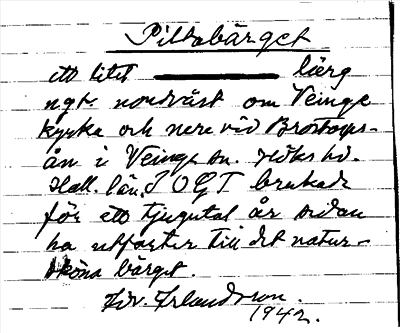 Piltabärget
ett litet bärg
ngt. nordväst om Veinge
kyrka och nere vid Brostorps-
ån i Veinge sn. Höks hd.
Hall. län. I OGT brukade
för ett tjugutal år sidan
ha utfarter till det natur-
sköna bärget.
Edv. Erlandsson.
1942.